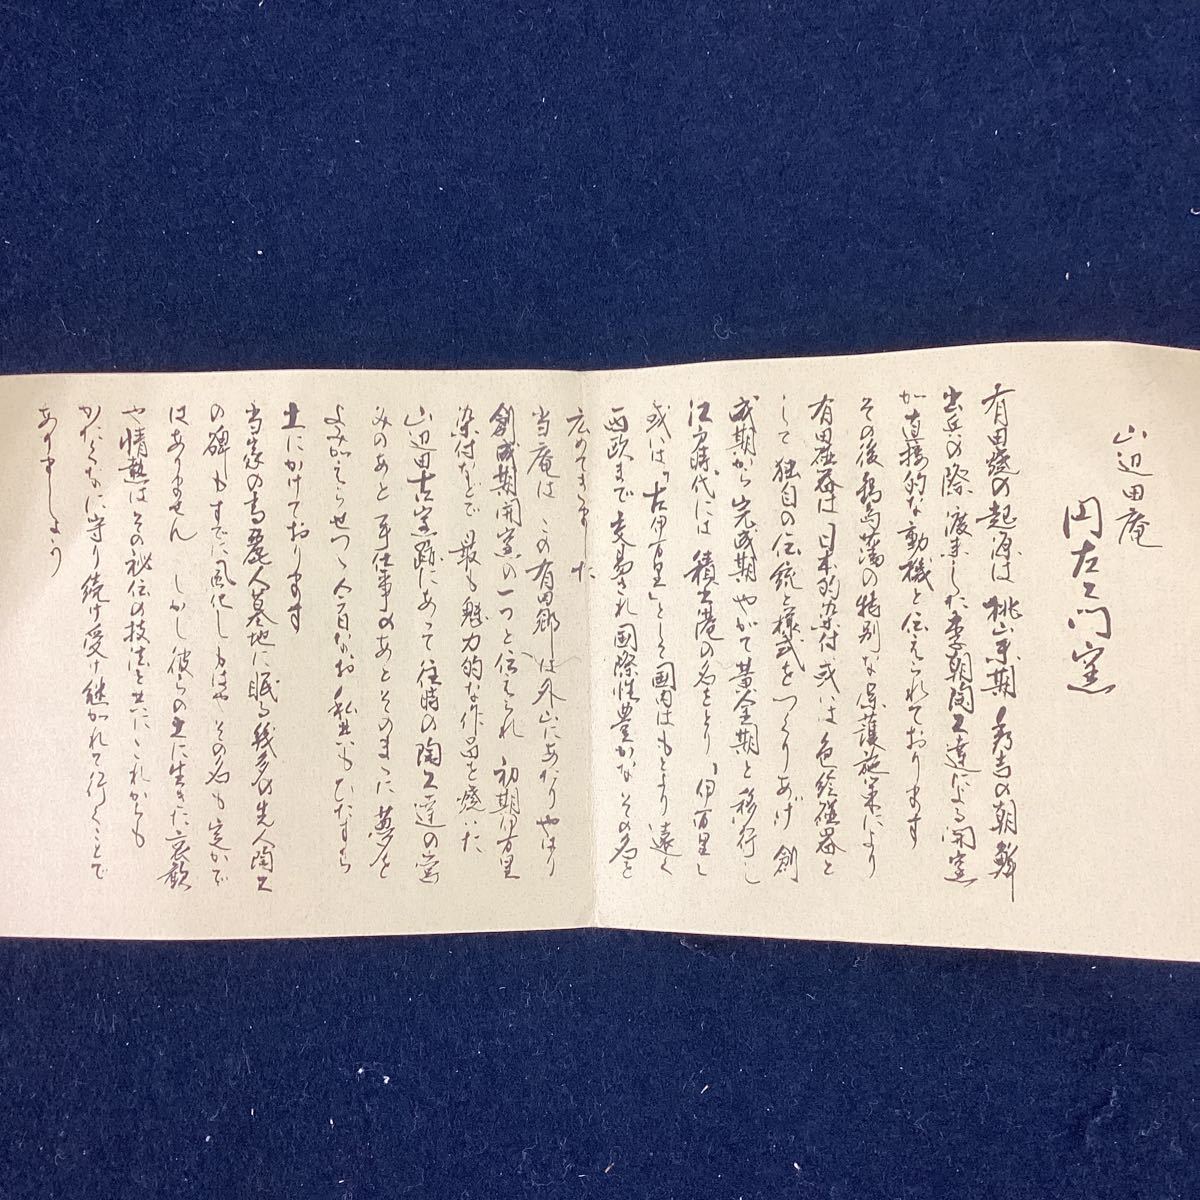 山辺田庵
円左ヱ門窯
有田焼の起源は 桃山末期 秀吉の朝鮮
出兵の際 渡来した李朝陶工達による開窯
が直接的な動機と伝えられております
その後 鍋島藩の特別な保護施策により
有田磁器は 日本的染付或いは色絵磁器と
して 独自の伝統と様式をつくりあげ 創
成期から完成期 やがて黄金期と移行し
江戸時代には 積出港の名をとり「伊万里」
或いは「古伊万里」として国内はもとより遠く
西欧まで交易され国際性豊かな その名を
広めてきました
当庵は この有田郷は外山にあたり やはり
創成期開窯の一つと伝えられ 初期伊万里
染付などで 最も魅力的な作品を焼いた
山辺田古窯跡にあって 往時の陶工達の営
みのあと 手仕事のあとそのままに 夢を
よみがえらせつゝ 今日なお私共もひたすら
土にかけております
当窯の高麗人墓地に眠る幾多の先人陶工
の碑も すでに風化し もはやその名も定かで
はありません しかし彼らの土に生きた哀歓
や情熱は その秘伝の技法と共に これからも
かたくなに守り続け受け継がれて行くことで
ありましょう